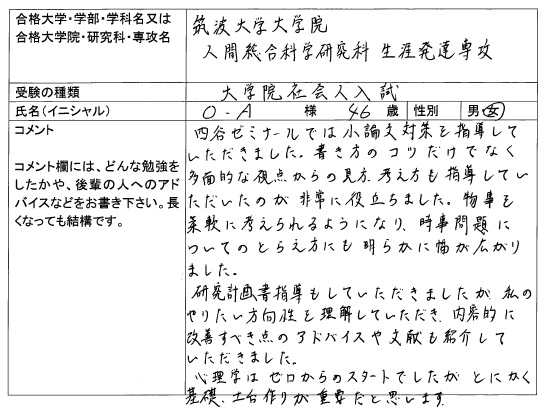 合格大学・学部・学科名又は
合格大学院・研究科・専攻名
筑波大学大学院
人間総合科学研究科 生涯発達専攻
受験の種類
大学院社会人入試
氏名(イニシャル)
O-A 様 46 歳 性別 男・女
コメント
コメント欄には、どんな勉強を
したかや、後輩の人へのアド
バイスなどをお書き下さい。長
くなっても結構です。
四谷ゼミナールでは小論文対策を指導して
いただきました。書き方のコツだけでなく
多面的な視点からの見方、考え方も指導してい
ただいたのが非常に役立ちました。物事を
柔軟に考えられるようになり、時事問題に
ついてのとらえ方にも明らかに幅が広がり
ました。
研究計画書指導もしていただきましたが、私の
やりたい方向性を理解していただき、内容的に
改善すべき点のアドバイスや文献も紹介して
いただきました。
心理学はゼロからのスタートでしたが とにかく
基礎、土台作りが重要だと思います。